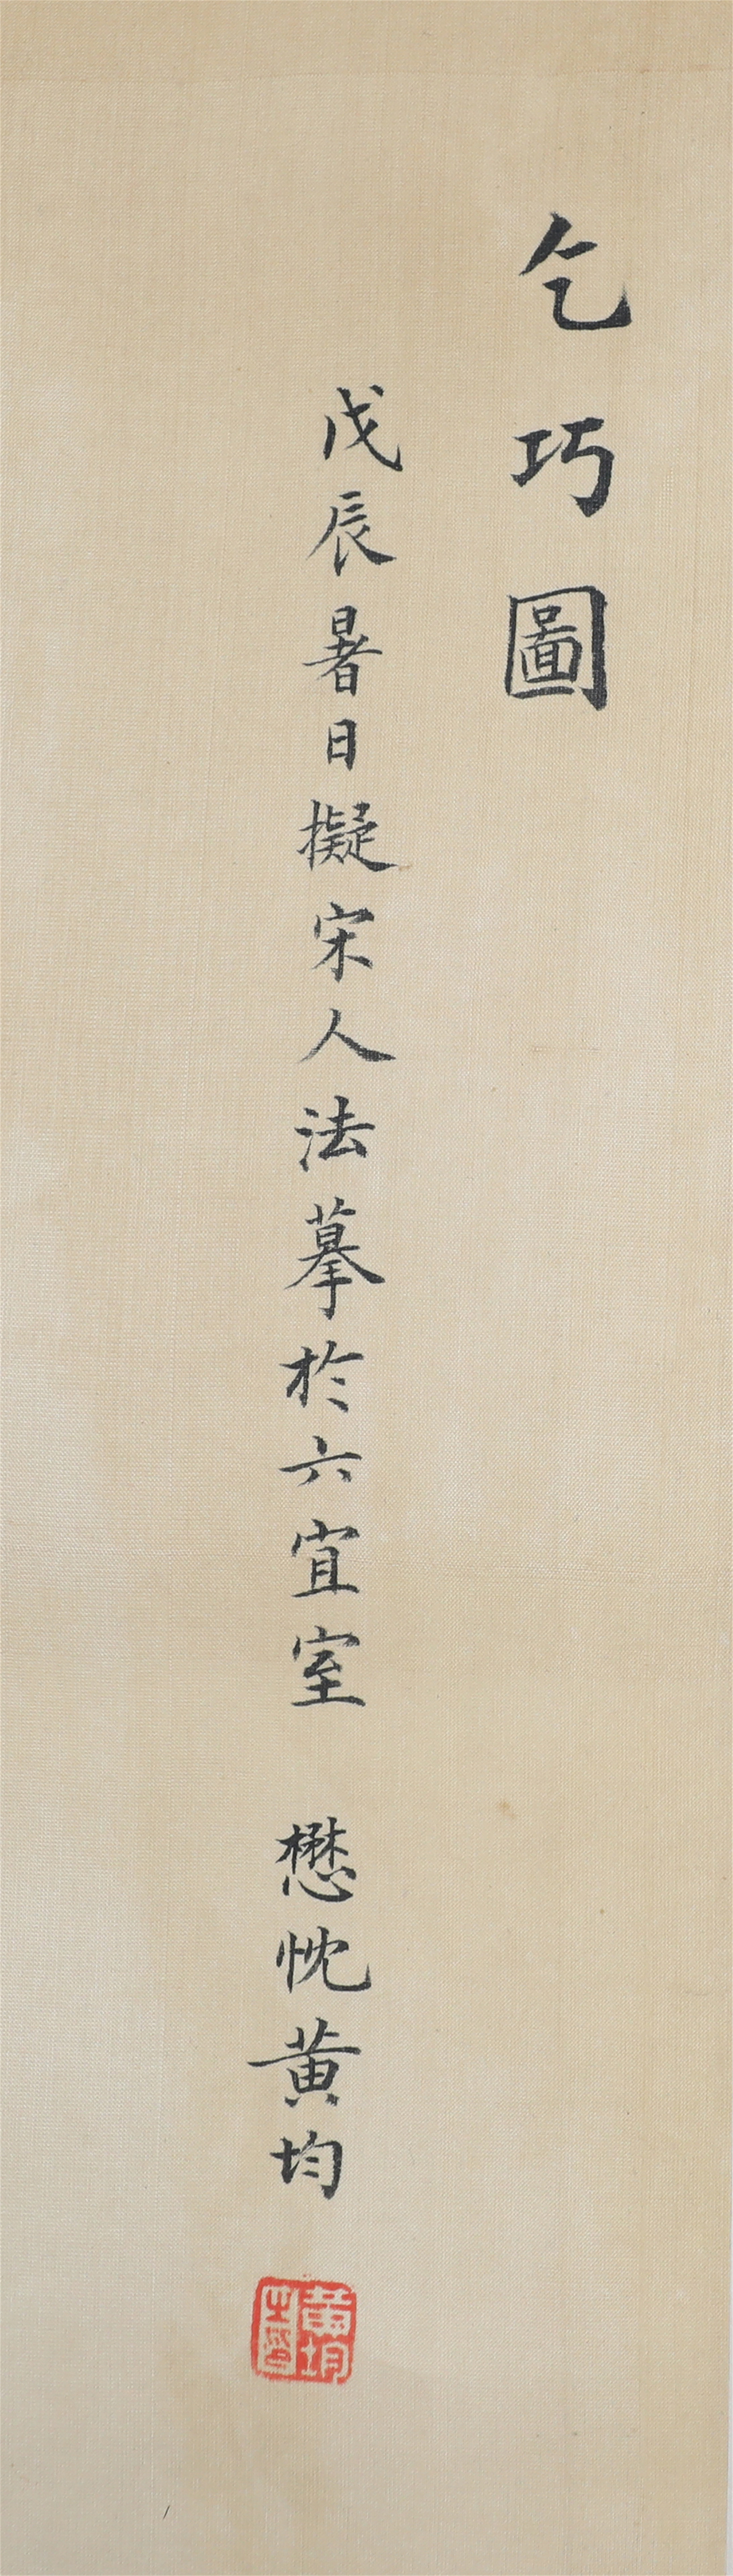 乞巧圖
戊辰暑日擬宋人法摹於六宜室 懋忱黄均
黄均之璽